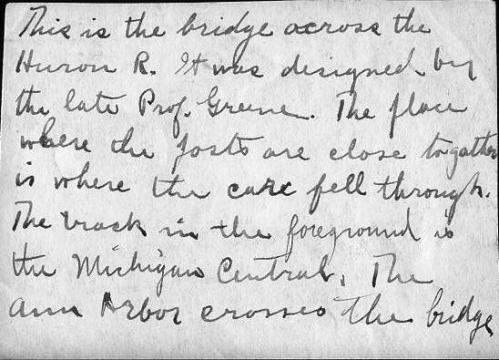 This is the bridge across the
Huron R. It was designed by
the late Prof. Greene. The place
where the posts are close together
is where the cars fell through.
The track in the foreground is
the Michigan Central. The
Ann Arbor crosses the bridge